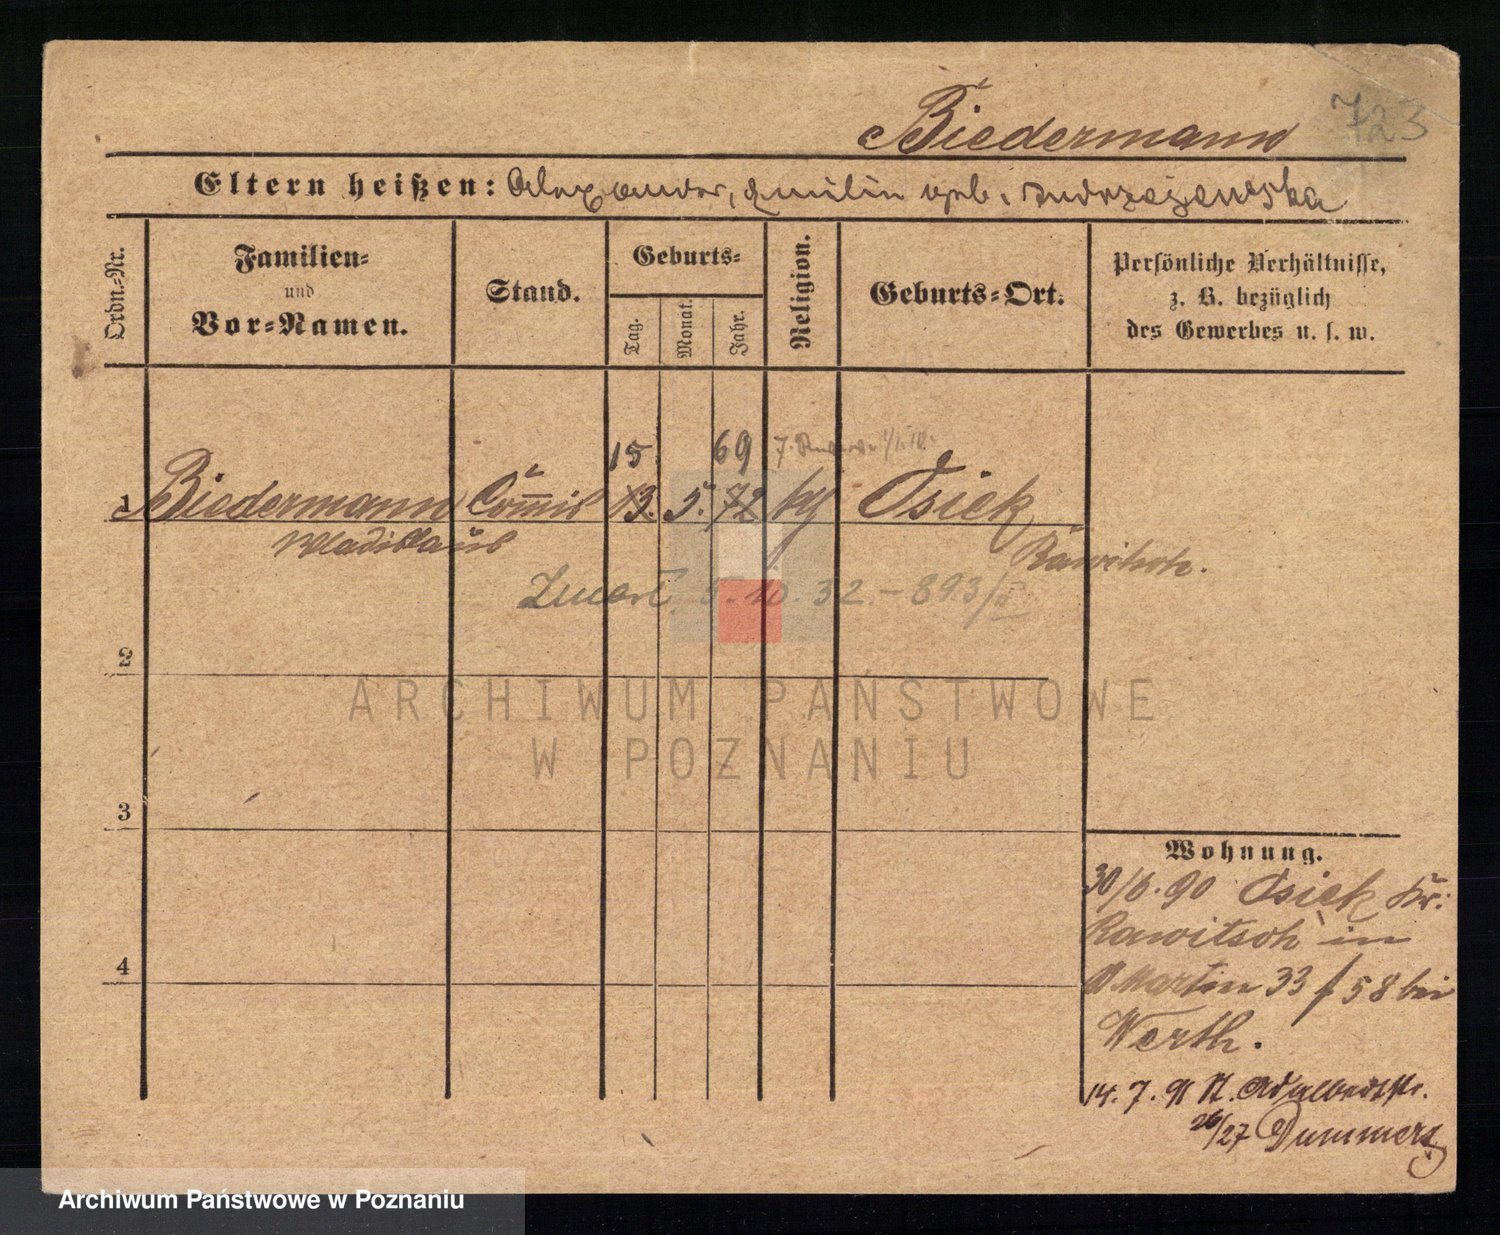 723
Biedermann
Eltern heißen: Alexander, Emilia geb. Andrzejewska
Ordn.-Nr.
Familien-
und
Vor-Namen.
Stand.
Geburts-
Tag.
Monat.
Jahr.
Religion.
Geburts-Ort.
Persönliche Verhältnisse,
z. B. bezüglich
des Gewerbes u. s. w.
15. 69
1 Biedermann Commis 13. 5. 72 kth Osiek
Wladislaus Rawitsch.
Zmarł 5.10.32. - 893/
2
ARCHIWUM PAŃSTWOWE
W POZNANIU
3
Wohnung.
30/6.90 Osiek Kr:
Rawitsch in
4
St Martin 33 f 58 bei
Werth.
14.7.91 St. Adalbertstr.
26/27 Dummert
Archiwum Państwowe w Poznaniu